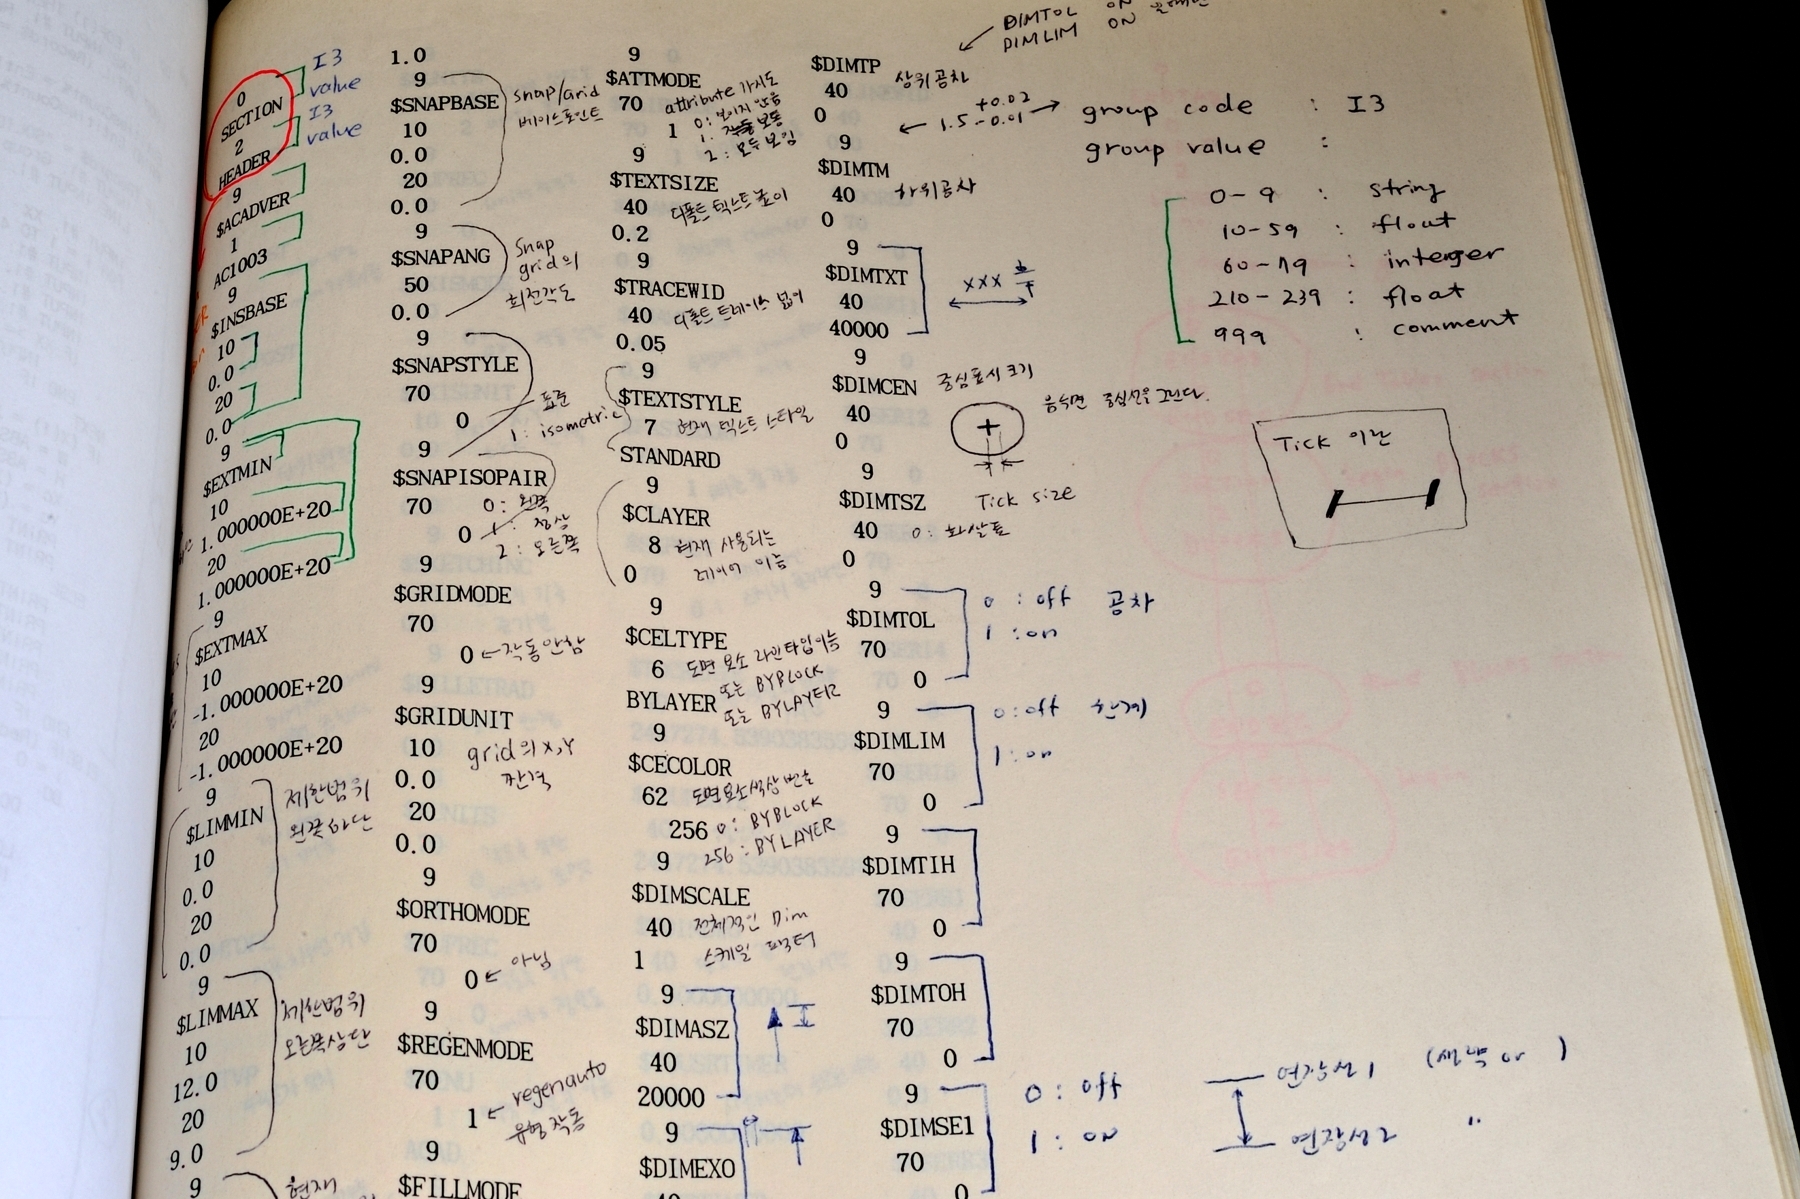 0
SECTION
2
HEADER
9
$ACADVER
1
AC1003
9
$INSBASE
10
0.0
20
0.0
9
$EXTMIN
10
1.000000E+20
20
1.000000E+20
9
$EXTMAX
10
-1.000000E+20
20
-1.000000E+20
9
$LIMMIN
10
0.0
20
0.0
9
$LIMMAX
10
12.0
20
9.0
9
I3
value
I3
value
제한범위
왼쪽하단
제한범위
오른쪽상단
현재
1.0
9
$SNAPBASE
10
0.0
20
0.0
9
$SNAPANG
50
0.0
9
$SNAPSTYLE
70
0
9
$SNAPISOPAIR
70
0
9
$GRIDMODE
70
0
9
$GRIDUNIT
10
0.0
20
0.0
9
$ORTHOMODE
70
0
9
$REGENMODE
70
1
9
$FILLMODE
snap/grid
베이스포인트
snap
grid의
회전각도
표준
1 : isometric
0 : 왼쪽
1 : 정상
2 : 오른쪽
작동안함
grid의 X,Y
간격
아님
regenauto
유형 작동
9
$ATTMODE
70
1
9
$TEXTSIZE
40
0.2
9
$TRACEWID
40
0.05
9
$TEXTSTYLE
7
STANDARD
9
$CLAYER
8
0
9
$CELTYPE
6
BYLAYER
9
$CECOLOR
62
256
9
$DIMSCALE
40
1
9
$DIMASZ
40
20000
9
$DIMEXO
40
attribute 가시도
0 : 보이지 않음
1 : 보통
2 : 모두 보임
디폴트 텍스트 높이
디폴트 트레이스 넓이
현재 텍스트 스타일
현재 사용되는
레이어 이름
도면 요소 라인타입이름
또는 BYBLOCK
또는 BYLAYER
도면요소색상 번호
0 : BYBLOCK
256 : BYLAYER
전체적인 Dim
스케일 팩터
$DIMTP
40
0
9
$DIMTM
40
0
9
$DIMTXT
40
40000
9
$DIMCEN
40
0
9
$DIMTSZ
40
0
9
$DIMTOL
70
0
9
$DIMLIM
70
0
9
$DIMTIH
70
0
9
$DIMTOH
70
0
9
$DIMSE1
70
0
DIMTOL ON
DIMLIM ON
상위공차
+0.02
1.5-0.01
하위공차
XXX
중심표시 크기
음수면 중심선을 그린다.
Tick size
0 : 화살표
0 : off 공차
1 : on
0 : off 한계
1 : on
0 : off
1 : on
연장선1 (생략 or )
연장선2 "
group code : I3
group value :
0-9 : string
10-59 : float
60-79 : interger
210-239 : float
999 : comment
Tick 이란